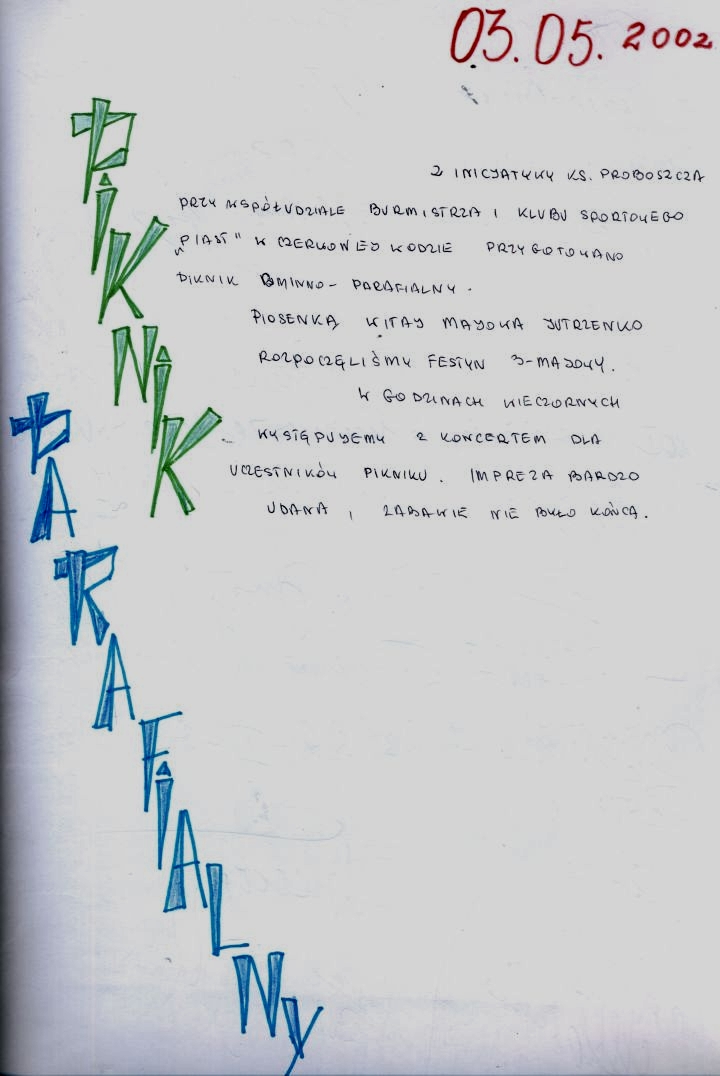 03.05.2002
PIKNIK
PARAFIALNY
Z INICJATYWY KS. PROBOSZCZA
PRZY WSPÓŁUDZIALE BURMISTRZA I KLUBU SPORTOWEGO
„PIAST" W CZERWONEJ WODZIE PRZYGOTOWANO
PIKNIK GMINNO - PARAFIALNY.
PIOSENKĄ WITAJ MAJOWA JUTRZENKO
ROZPOCZĘLIŚMY FESTYN 3-MAJOWY.
W GODZINACH WIECZORNYCH
WYSTĘPUJEMY Z KONCERTEM DLA
UCZESTNIKÓW PIKNIKU. IMPREZA BARDZO
UDANA I ZABAWIE NIE BYŁO KOŃCA.